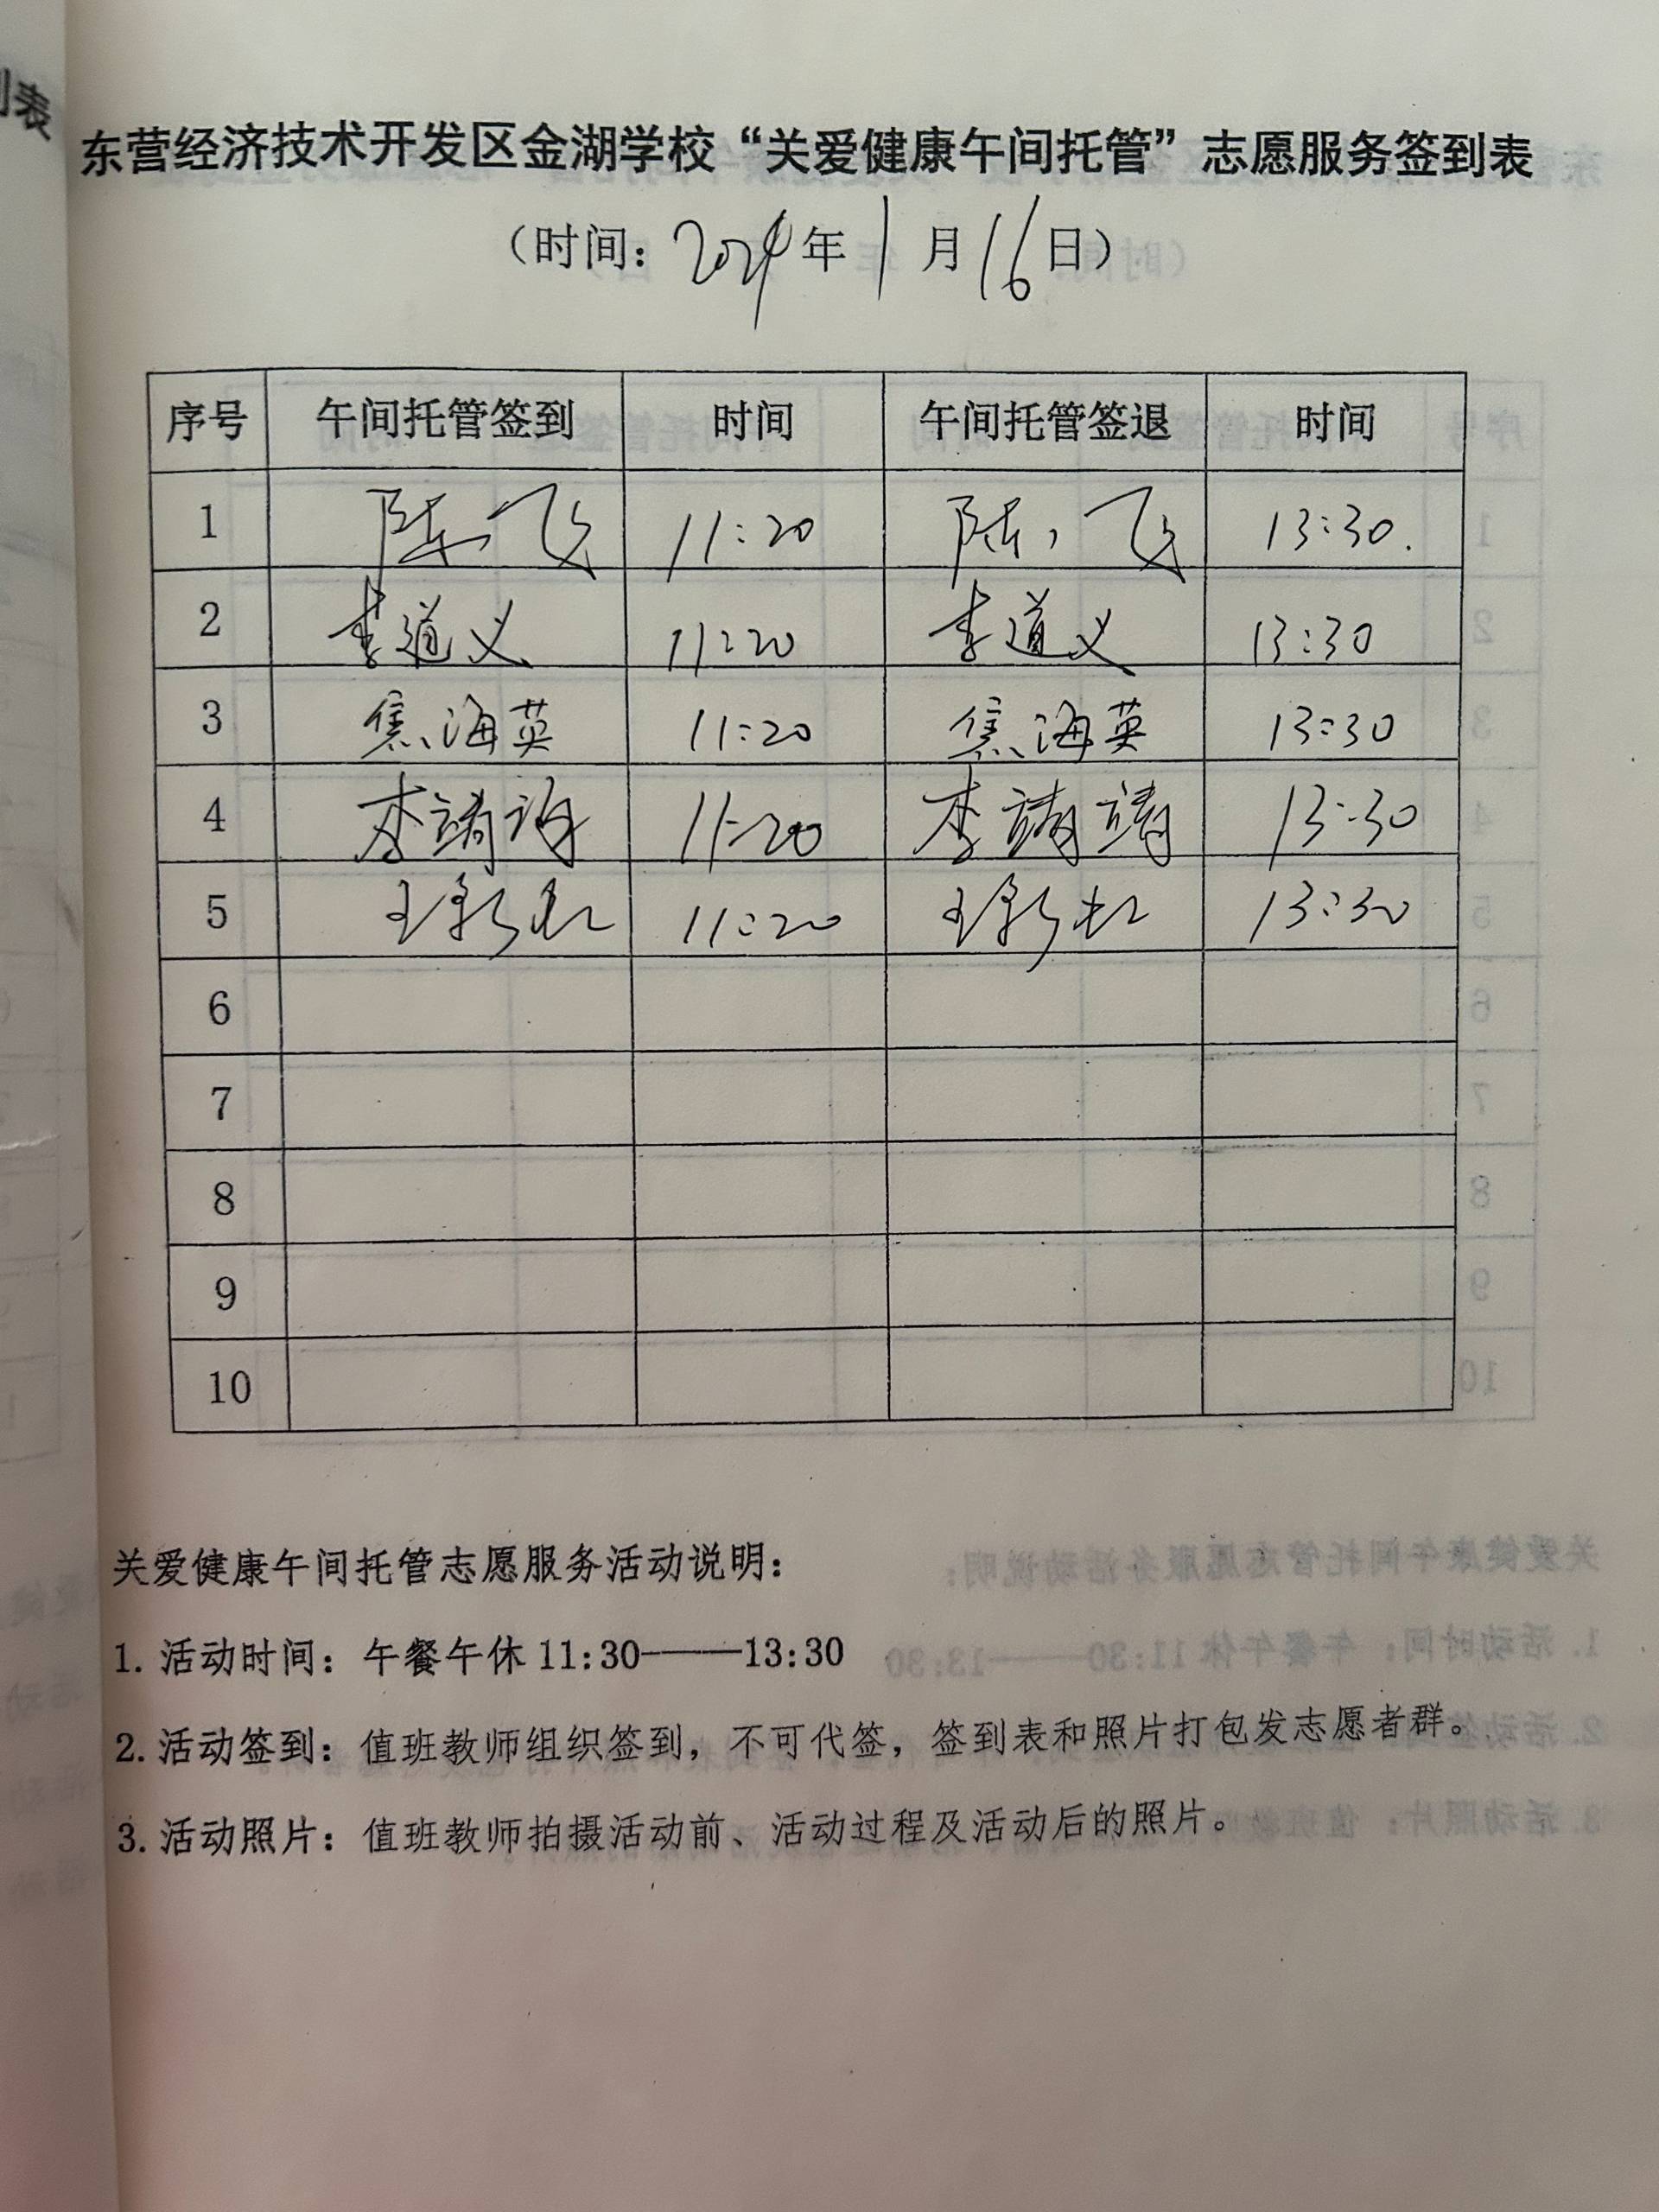 东营经济技术开发区金湖学校“关爱健康午间托管”志愿服务签到表
（时间：2024年1月16日）
序号 午间托管签到 时间 午间托管签退 时间
1 陈飞 11:20 陈飞 13:30.
2 李道义 11:20 李道义 13:30
3 焦海英 11:20 焦海英 13:30
4 李靖 11:20 李靖靖 13:30
5 王 11:20 王 13:30
6
7
8
9
10
关爱健康午间托管志愿服务活动说明：
1. 活动时间：午餐午休 11:30——13:30
2. 活动签到：值班教师组织签到，不可代签，签到表和照片打包发志愿者群。
3. 活动照片：值班教师拍摄活动前、活动过程及活动后的照片。